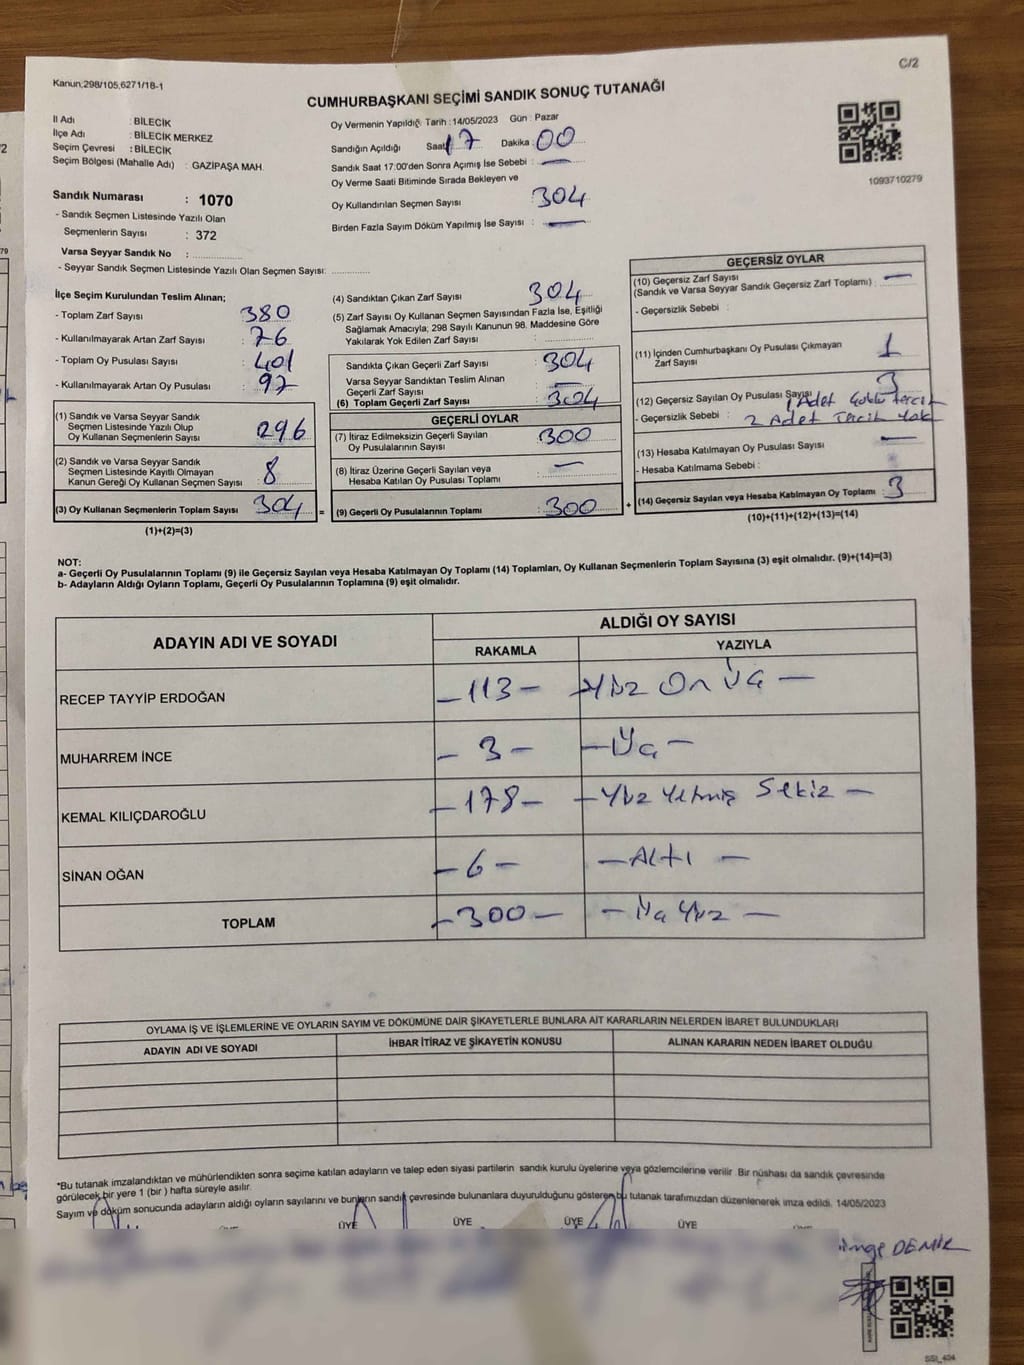 C/2
Kanun;298/105,6271/18-1
CUMHURBAŞKANI SEÇİMİ SANDIK SONUÇ TUTANAĞI
İl Adı : BİLECİK
İlçe Adı : BİLECİK MERKEZ
Seçim Çevresi : BİLECİK
Seçim Bölgesi (Mahalle Adı) : GAZİPAŞA MAH.
Oy Vermenin Yapıldığı Tarih : 14/05/2023 Gün : Pazar
Sandığın Açıldığı Saat 17 Dakika : 00
Sandık Saat 17:00'den Sonra Açımış İse Sebebi : —
Oy Verme Saati Bitiminde Sırada Bekleyen ve
Oy Kullandırılan Seçmen Sayısı 304
Birden Fazla Sayım Döküm Yapılmış İse Sayısı : —
1093710279
Sandık Numarası : 1070
- Sandık Seçmen Listesinde Yazılı Olan
Seçmenlerin Sayısı : 372
Varsa Seyyar Sandık No : ................
- Seyyar Sandık Seçmen Listesinde Yazılı Olan Seçmen Sayısı: ............
İlçe Seçim Kurulundan Teslim Alınan;
- Toplam Zarf Sayısı : 380
- Kullanılmayarak Artan Zarf Sayısı : 76
- Toplam Oy Pusulası Sayısı : 401
- Kullanılmayarak Artan Oy Pusulası : 97
(1) Sandık ve Varsa Seyyar Sandık
Seçmen Listesinde Yazılı Olup
Oy Kullanan Seçmenlerin Sayısı 296
(2) Sandık ve Varsa Seyyar Sandık
Seçmen Listesinde Kayıtlı Olmayan
Kanun Gereği Oy Kullanan Seçmen Sayısı : 8
(3) Oy Kullanan Seçmenlerin Toplam Sayısı 304 =
(1)+(2)=(3)
(4) Sandıktan Çıkan Zarf Sayısı 304
(5) Zarf Sayısı Oy Kullanan Seçmen Sayısından Fazla İse, Eşitliği
Sağlamak Amacıyla; 298 Sayılı Kanunun 98. Maddesine Göre
Yakılarak Yok Edilen Zarf Sayısı : ............
Sandıkta Çıkan Geçerli Zarf Sayısı 304
Varsa Seyyar Sandıktan Teslim Alınan
Geçerli Zarf Sayısı —
(6) Toplam Geçerli Zarf Sayısı : 304
GEÇERLİ OYLAR
(7) İtiraz Edilmeksizin Geçerli Sayılan
Oy Pusulalarının Sayısı 300
(8) İtiraz Üzerine Geçerli Sayılan veya
Hesaba Katılan Oy Pusulası Toplamı : —
(9) Geçerli Oy Pusulalarının Toplamı 300 +
GEÇERSİZ OYLAR
(10) Geçersiz Zarf Sayısı
(Sandık ve Varsa Seyyar Sandık Geçersiz Zarf Toplamı) : —
- Geçersizlik Sebebi :
(11) İçinden Cumhurbaşkanı Oy Pusulası Çıkmayan
Zarf Sayısı 1
(12) Geçersiz Sayılan Oy Pusulası Sayısı 3
1 Adet Çoklu tercih
- Geçersizlik Sebebi : 2 Adet Tercih Yok
(13) Hesaba Katılmayan Oy Pusulası Sayısı —
- Hesaba Katılmama Sebebi :
(14) Geçersiz Sayılan veya Hesaba Katılmayan Oy Toplamı : 3
(10)+(11)+(12)+(13)=(14)
NOT:
a- Geçerli Oy Pusulalarının Toplamı (9) ile Geçersiz Sayılan veya Hesaba Katılmayan Oy Toplamı (14) Toplamları, Oy Kullanan Seçmenlerin Toplam Sayısına (3) eşit olmalıdır. (9)+(14)=(3)
b- Adayların Aldığı Oyların Toplamı, Geçerli Oy Pusulalarının Toplamına (9) eşit olmalıdır.
ADAYIN ADI VE SOYADI ALDIĞI OY SAYISI
RAKAMLA YAZIYLA
RECEP TAYYİP ERDOĞAN —113— —Yüz On Üç—
MUHARREM İNCE —3— —Üç—
KEMAL KILIÇDAROĞLU —178— —Yüz Yetmiş Sekiz—
SİNAN OĞAN —6— —Altı—
TOPLAM —300— —Üç Yüz—
OYLAMA İŞ VE İŞLEMLERİNE VE OYLARIN SAYIM VE DÖKÜMÜNE DAİR ŞİKAYETLERLE BUNLARA AİT KARARLARIN NELERDEN İBARET BULUNDUKLARI
ADAYIN ADI VE SOYADI İHBAR İTİRAZ VE ŞİKAYETİN KONUSU ALINAN KARARIN NEDEN İBARET OLDUĞU
*Bu tutanak imzalandıktan ve mühürlendikten sonra seçime katılan adayların ve talep eden siyasi partilerin sandık kurulu üyelerine veya gözlemcilerine verilir. Bir nüshası da sandık çevresinde
görülecek bir yere 1 (bir ) hafta süreyle asılır.
Sayım ve döküm sonucunda adayların aldığı oyların sayılarını ve bunların sandık çevresinde bulunanlara duyurulduğunu gösteren bu tutanak tarafımızdan düzenlenerek imza edildi. 14/05/2023
ÜYE ÜYE ÜYE ÜYE
DEMİR